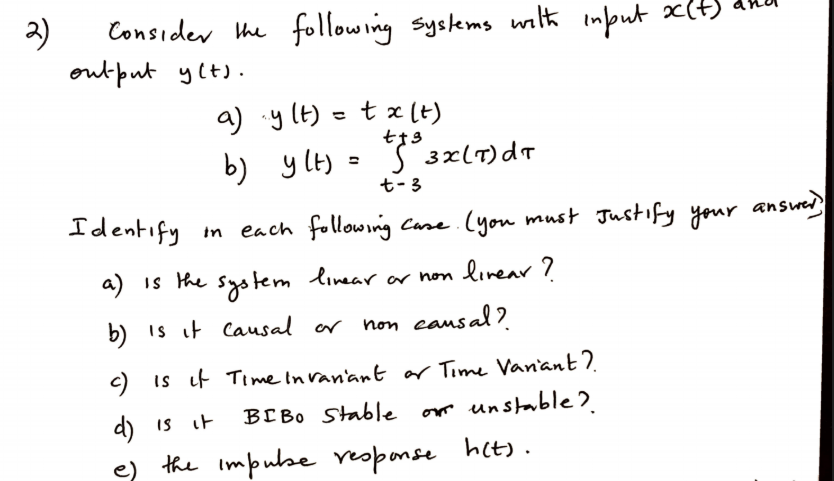 2) Consider the following systems with input x(t) and
output y(t).
a) y(t) = t x(t)
b) y(t) = ∫_{t-3}^{t+3} 3x(τ)dτ
Identify in each following case. (you must Justify your answer)
a) is the system linear or non linear?
b) is it causal or non causal?
c) is it Time Invariant or Time Variant?
d) is it BIBO Stable or unstable?
e) the impulse response h(t).